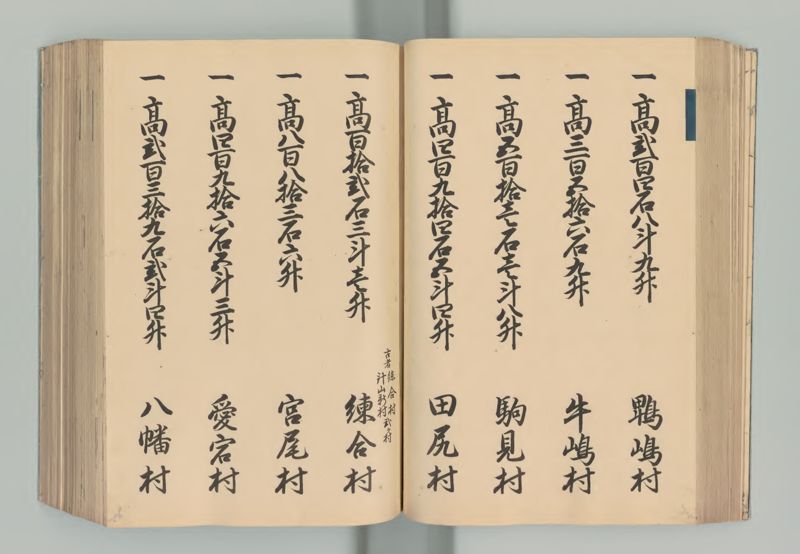 一 高弐百四石八斗九升 鴨嶋村
一 高三百五拾六石九升 牛嶋村
一 高五百拾壱石壱斗八升 駒見村
一 高四百九拾四石五斗四升 田尻村
古者練合村
計山新村弐ヶ村
一 高百拾弐石三斗壱升 練合村
一 高八百八拾三石六升 宮尾村
一 高四百九拾六石五斗三升 愛宕村
一 高弐百三拾九石弐斗四升 八幡村